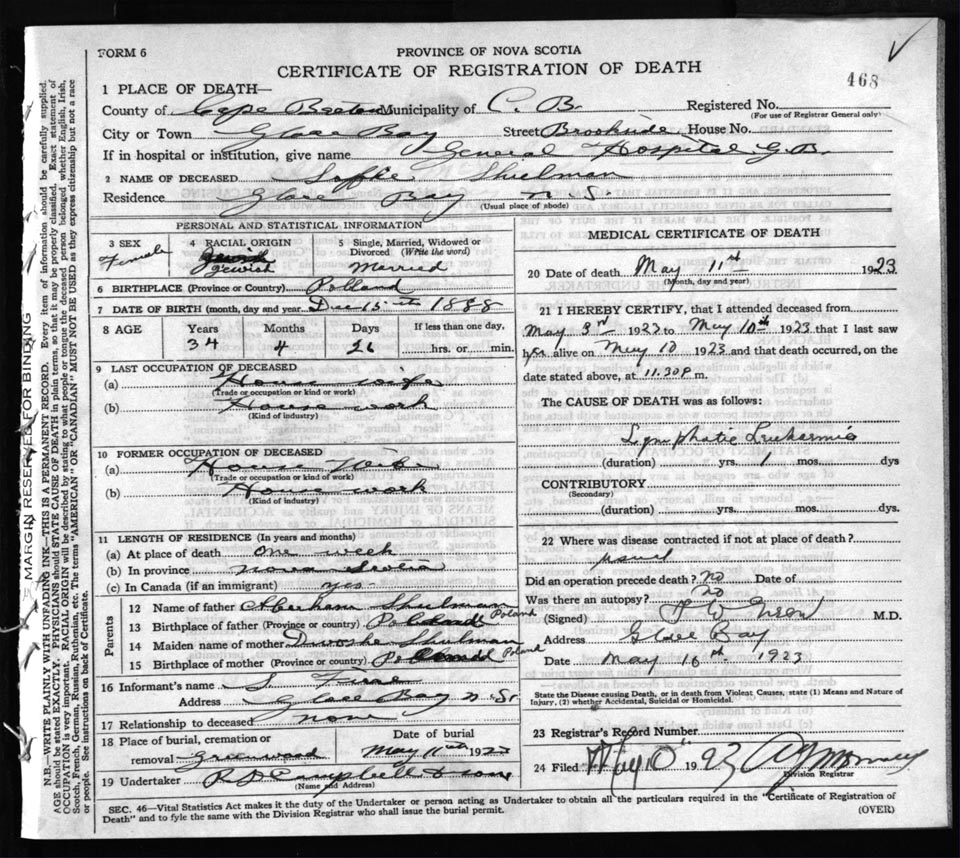 FORM 6
PROVINCE OF NOVA SCOTIA
CERTIFICATE OF REGISTRATION OF DEATH
468
1 PLACE OF DEATH—
County of Cape Breton Municipality of C. B. Registered No.
(For use of Registrar General only)
City or Town Glace Bay Street Brookside House No.
If in hospital or institution, give name General Hospital G.B.
2 NAME OF DECEASED Shulman
Residence Glace Bay N S
(Usual place of abode)
PERSONAL AND STATISTICAL INFORMATION
3 SEX Female
4 RACIAL ORIGIN Jewish
5 Single, Married, Widowed or Divorced (Write the word) Married
6 BIRTHPLACE (Province or Country) Polland
7 DATE OF BIRTH (month, day and year) Dec 15th 1888
8 AGE Years Months Days If less than one day,
34 4 26 hrs. or min.
9 LAST OCCUPATION OF DECEASED
(a) House wife
(Trade or occupation or kind or work)
(b) House work
(Kind of industry)
10 FORMER OCCUPATION OF DECEASED
(a) House Wife
(Trade or occupation or kind of work)
(b) House work
(Kind of industry)
11 LENGTH OF RESIDENCE (In years and months)
(a) At place of death one week
(b) In province nova Scotia
(c) In Canada (if an immigrant) yes
Parents
12 Name of father Abraham Shulman
13 Birthplace of father (Province or country) Poland
14 Maiden name of mother Shulman
15 Birthplace of mother (Province or country) Poland
16 Informant's name S.
Address Glace Bay N. S.
17 Relationship to deceased none
18 Place of burial, cremation or removal Greenwood
Date of burial May 11th 1923
19 Undertaker Campbell & sons
(Name and Address)
MEDICAL CERTIFICATE OF DEATH
20 Date of death May 11th 1923
(Month, day and year)
21 I HEREBY CERTIFY, that I attended deceased from
May 3rd 1923 to May 10th 1923 that I last saw
her alive on May 10 1923 and that death occurred, on the
date stated above, at 11.30 P m.
The CAUSE OF DEATH was as follows:
Lymphatic Leukermia
(duration) yrs. 1 mos. dys
CONTRIBUTORY
(Secondary)
(duration) yrs. mos. dys.
22 Where was disease contracted if not at place of death?
Did an operation precede death? no Date of
Was there an autopsy? no
(Signed) M.D.
Address Glace Bay
Date May 10th 1923
State the Disease causing Death, or in death from Violent Causes, state (1) Means and Nature of
Injury, (2) whether Accidental, Suicidal or Homicidal.
23 Registrar's Record Number
24 Filed May 10 1923
Division Registrar
SEC. 46—Vital Statistics Act makes it the duty of the Undertaker or person acting as Undertaker to obtain all the particulars required in the "Certificate of Registration of
Death" and to fyle the same with the Division Registrar who shall issue the burial permit.
(OVER)
MARGIN RESERVED FOR BINDING
N.B.—WRITE PLAINLY WITH UNFADING INK—THIS IS A PERMANENT RECORD. Every item of information should be carefully supplied.
AGE should be stated EXACTLY. PHYSICIANS should STATE CAUSE OF DEATH in plain terms, so that it may be properly classified. Exact statement of
OCCUPATION is very important. RACIAL ORIGIN will be described by stating to what people or tongue the deceased person belonged whether English, Irish,
Scotch, French, German, Russian, Ruthenian, etc. The terms "AMERICAN" OR "CANADIAN" MUST NOT BE USED as they express citizenship but not a race
or people. See instructions on back of Certificate.